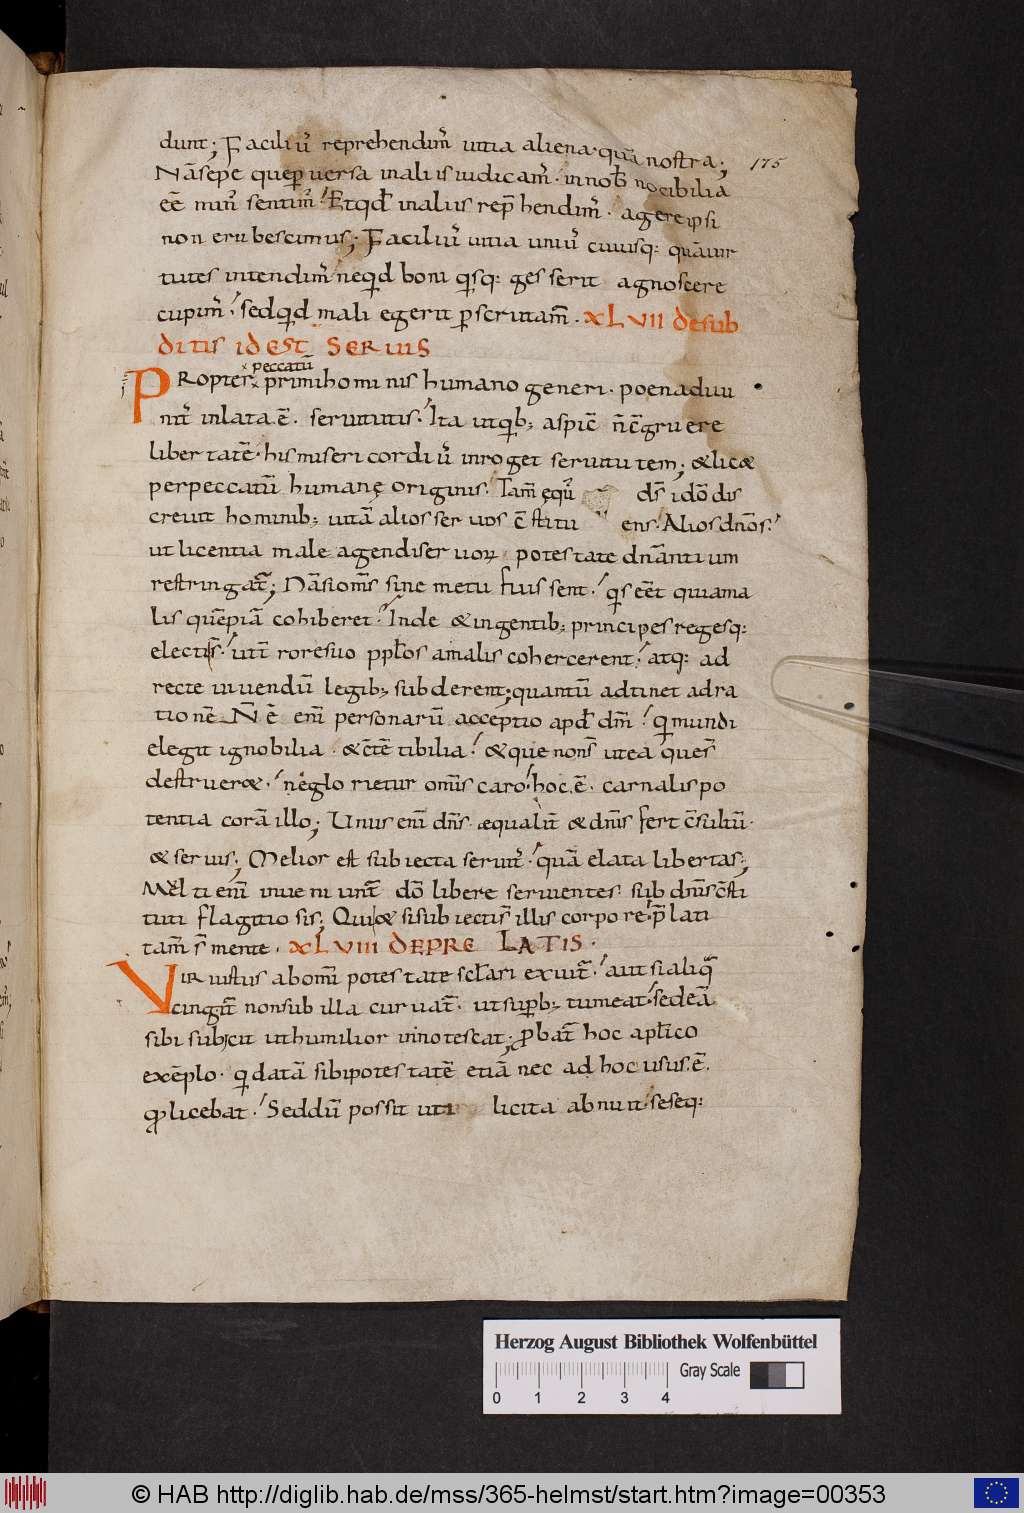 dunt; Faciliꝰ reprehendimꝰ uitia aliena· quā nostra;
175
Nā sepe que ꝑuersa in aliis iudicamꝰ· in nob̄ nocibilia
eē minꝰ sentimꝰ; Et qd̄ in aliis rep̄hendimꝰ· agere ipsi
non erubescimus; Faciliꝰ uitia uniꝰ cuiusq: quā uir
tutes intendimꝰ neqd̄ boni qisq: gesserit agnoscere
cupimꝰ; sed qd̄ mali egerit ꝑscrutam̄· XLVII de sub
ditis id est servis
peccatū
Propter primi hominis humano generi· poena diui
nitꝰ inlata ē· seruitutis· Ita ut qib; aspic̄ ñ c̄gruere
libertatē· his misericordiꝰ inroget seruitutem; & lic&
per peccatū humanę originis· Tam̄ ęquꝰ ds̄ ido dis
creuit hominib; uitā alios seruos c̄stitu ens· Alios dn̄os·
ut licentia male agendi seruoꝝ potestate dn̄antium
restringat̄; Nā si om̄s sine metu fuissent· qis eēt qui a ma
lis quēpiā cohiberet· Inde & in gentib; principes regesq:
electi s̄· ut t̄rore suo pplo̅s a malis cohercerent· atq: ad
recte uiuendū legib; subderent; quantū adtinet ad ra
tionē N̄ ē eni̅ personarū acceptio apd̄ dm̄· qi mundi
elegit ignobilia· & c̄tētibilia· & que non s̄ ut ea que s̄
destruer&· ne glorietur om̄is caro· hoc ē· carnalis po
tentia corā illo; Unus eni̅ dn̄s· æqualit̄ & dn̄is fert c̄sultū·
& seruis; Melior est subiecta seruitꝰ· quā elata libertas;
Mul̄ti eni̅ inueniunt̄ do̅ libere seruientes· sub dn̄is c̄sti
tuti flagitiosis; Qui & si subiecti s̄ illis corpore· p̄lati
tam̄ s̄ mente· XLVIII DE PRELATIS·
Vir iustus ab omi̅ potestate scl̄ari exuit̄· aut si aliq̄
cingit̄ non sub illa curuat̄· ut suꝑb; tumeat· sed eā
sibi subicit ut humilior innotescat; ꝓbat̄ hoc aplico
exēplo· qi datā sibi potestatē etiā nec ad hoc usus ē·
ꝙ licebat· Sed dū possit uti licita abnuit· seseq:
Herzog August Bibliothek Wolfenbüttel
Gray Scale
0 1 2 3 4
© HAB http://diglib.hab.de/mss/365-helmst/start.htm?image=00353